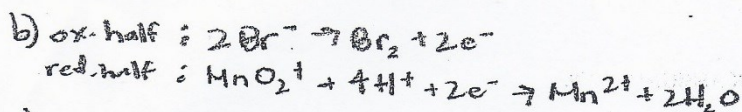 b) ox-half : 2Br⁻ → Br₂ + 2e⁻
red-half : MnO₂⁺ + 4H⁺ + 2e⁻ → Mn²⁺ + 2H₂O